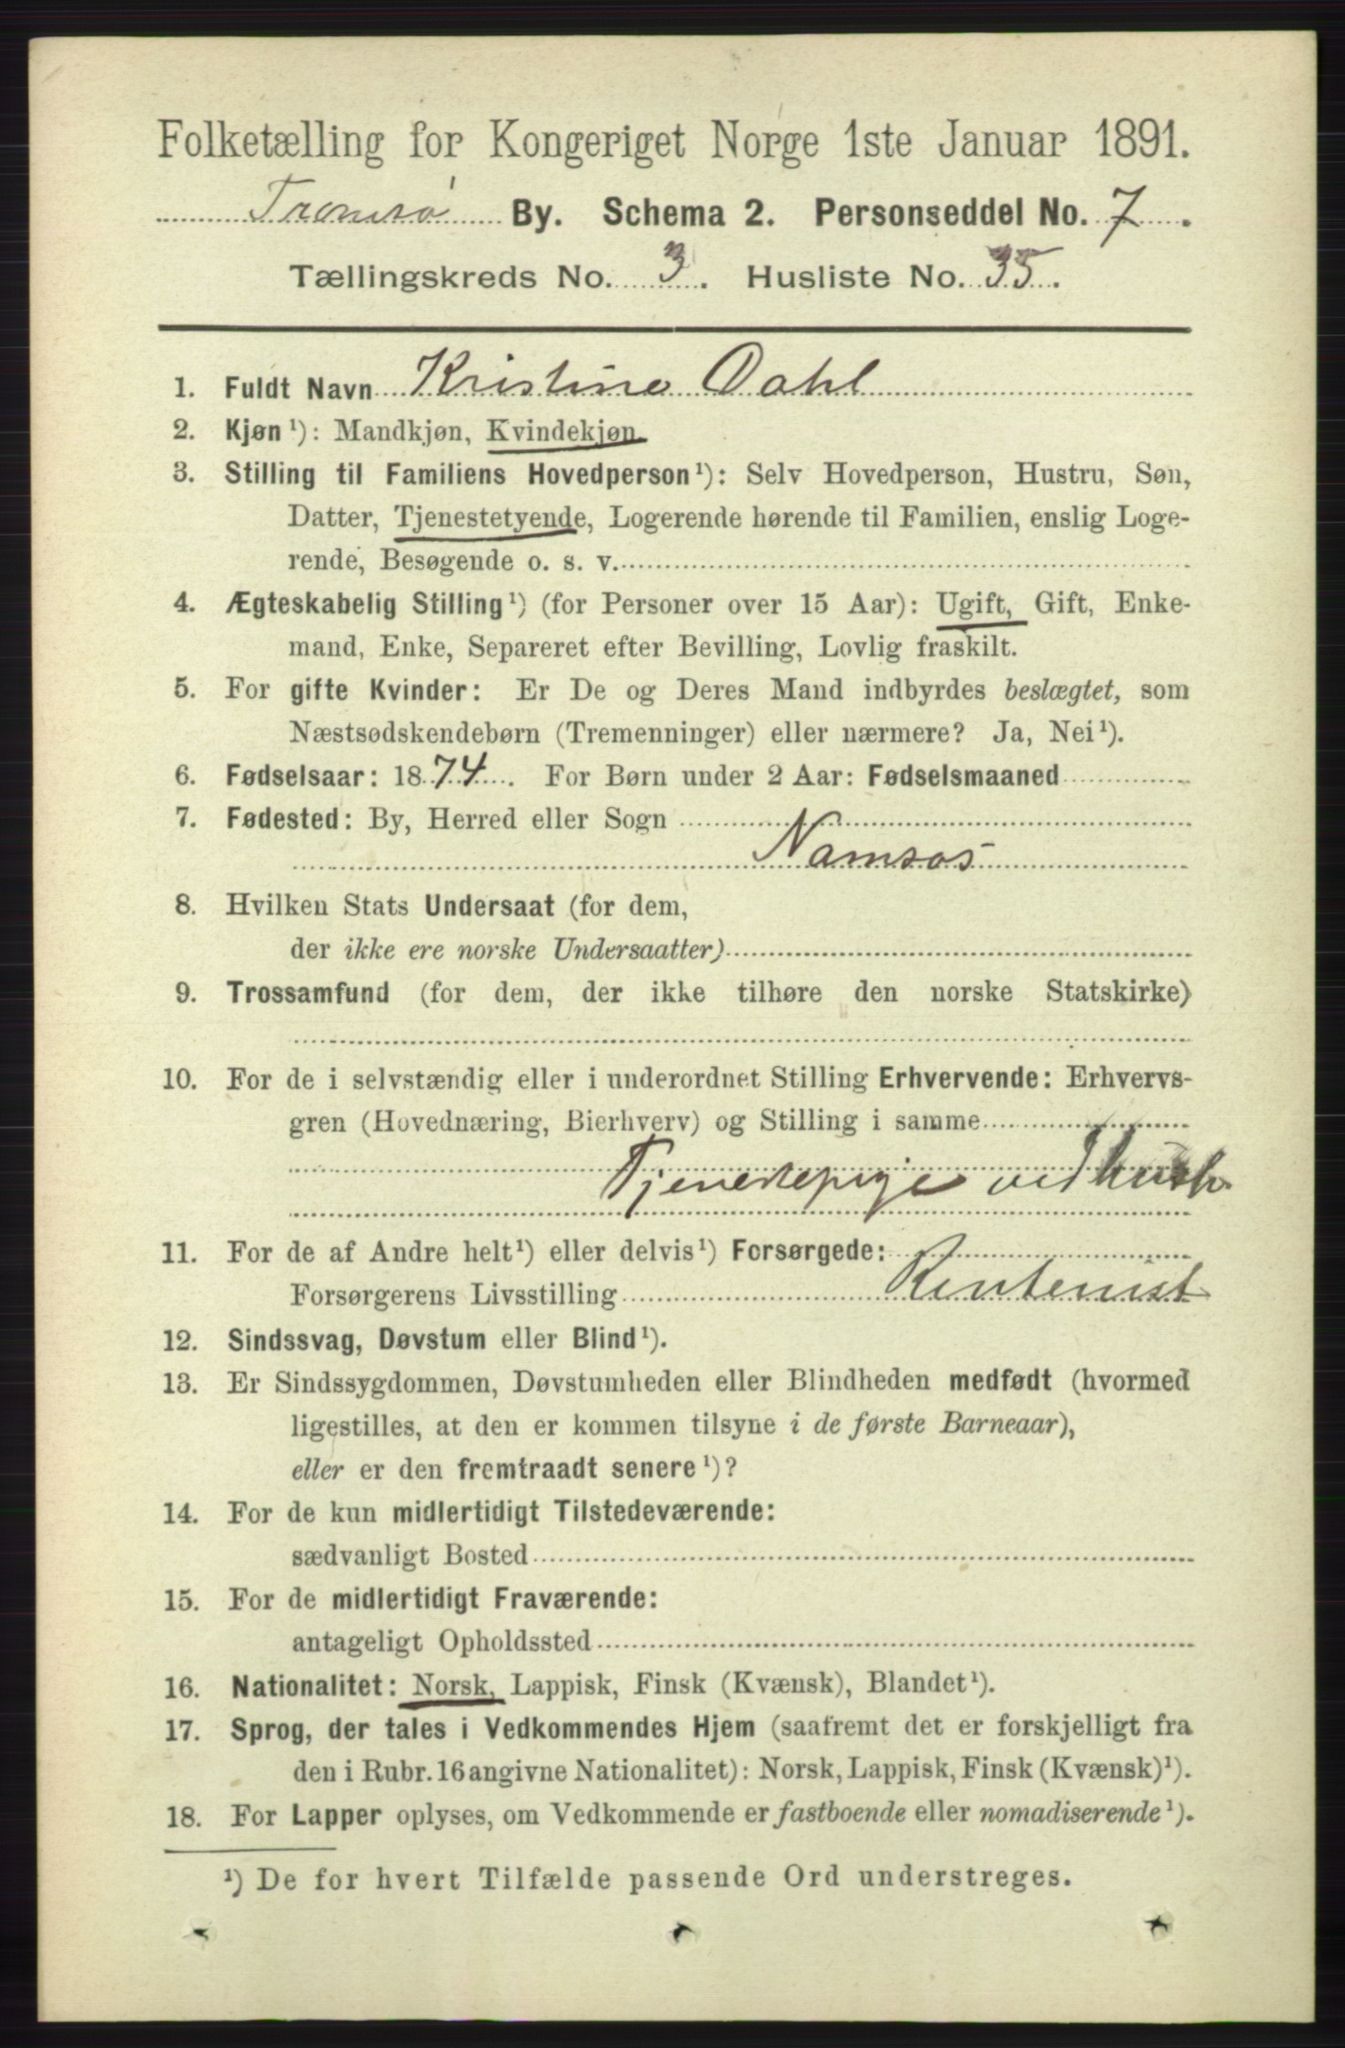 Folketælling for Kongeriget Norge 1ste Januar 1891.
Tromsø By. Schema 2. Personseddel No. 7.
Tællingskreds No. 3. Husliste No. 35.
1. Fuldt Navn Kristine Dahl
2. Kjøn¹): Mandkjøn, Kvindekjøn.
3. Stilling til Familiens Hovedperson¹): Selv Hovedperson, Hustru, Søn,
Datter, Tjenestetyende, Logerende hørende til Familien, enslig Loge-
rende, Besøgende o. s. v.
4. Ægteskabelig Stilling¹) (for Personer over 15 Aar): Ugift, Gift, Enke-
mand, Enke, Separeret efter Bevilling, Lovlig fraskilt.
5. For gifte Kvinder: Er De og Deres Mand indbyrdes beslægtet, som
Næstsødskendebørn (Tremenninger) eller nærmere? Ja, Nei¹).
6. Fødselsaar: 1874. For Børn under 2 Aar: Fødselsmaaned
7. Fødested: By, Herred eller Sogn
Namsos
8. Hvilken Stats Undersaat (for dem,
der ikke ere norske Undersaatter)
9. Trossamfund (for dem, der ikke tilhøre den norske Statskirke)
10. For de i selvstændig eller i underordnet Stilling Erhvervende: Erhvervs-
gren (Hovednæring, Bierhverv) og Stilling i samme
Tjenestepige ved
11. For de af Andre helt¹) eller delvis¹) Forsørgede:
Forsørgerens Livsstilling Rentenist
12. Sindssvag, Døvstum eller Blind¹).
13. Er Sindssygdommen, Døvstumheden eller Blindheden medfødt (hvormed
ligestilles, at den er kommen tilsyne i de første Barneaar),
eller er den fremtraadt senere¹)?
14. For de kun midlertidigt Tilstedeværende:
sædvanligt Bosted
15. For de midlertidigt Fraværende:
antageligt Opholdssted
16. Nationalitet: Norsk, Lappisk, Finsk (Kvænsk), Blandet¹).
17. Sprog, der tales i Vedkommendes Hjem (saafremt det er forskjelligt fra
den i Rubr. 16 angivne Nationalitet): Norsk, Lappisk, Finsk (Kvænsk)¹).
18. For Lapper oplyses, om Vedkommende er fastboende eller nomadiserende¹).
¹) De for hvert Tilfælde passende Ord understreges.